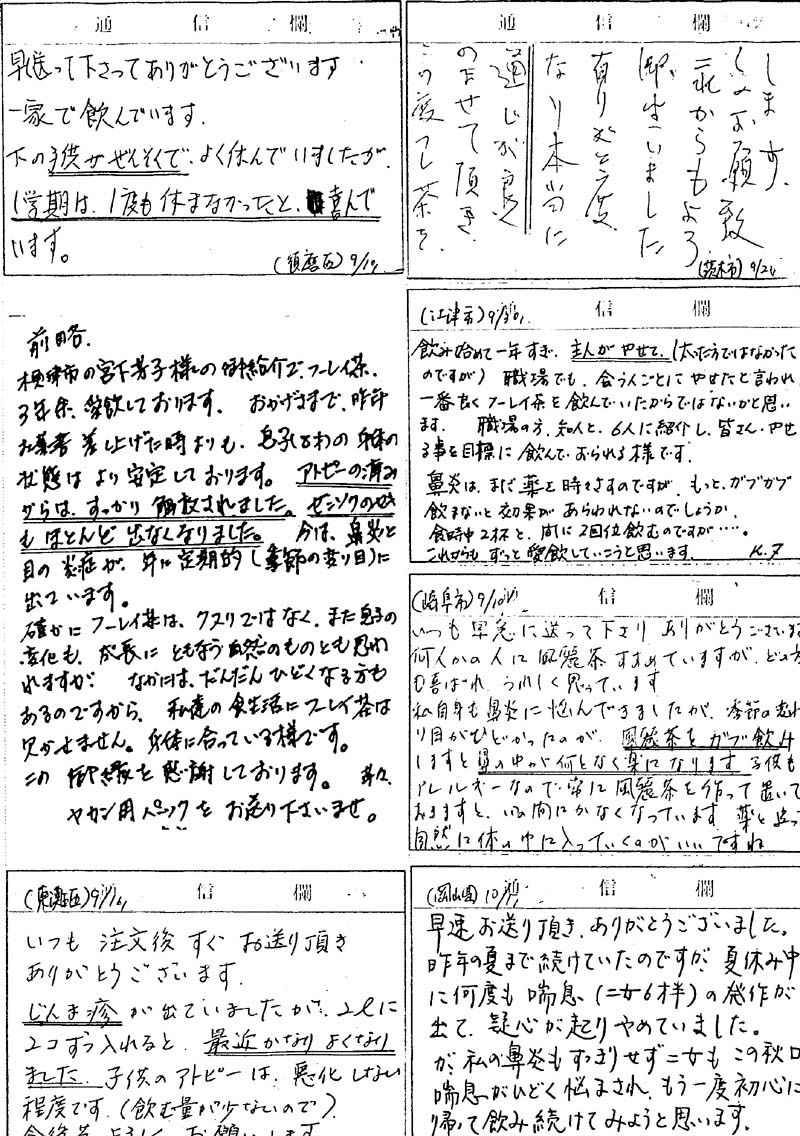 通信欄
早速送って下さってありがとうございます
一家で飲んでいます.
下の子供がぜんそくで、よく休んでいましたが、
1学期は、1度も休まなかったと、喜んで
います。
(須磨区) 9/10
通信欄
この度フレ茶を
のませて頂き
通じが良く
なり本当に
有りがとう度
御坐いました
これからもよろ
しくお願致
します.
(茨木市) 9/20
前略.
摂津市の宮下芳子様の御紹介で、フーレイ茶、
3年余、愛飲しております。おかげさまで、昨年
お葉書差し上げた時よりも、息子8才の身体の
状態はより安定しております。アトピーの痒み
からは、すっかり解放されました。ゼンソクのせき
もほとんど出なくなりました。今は、鼻炎と
目の炎症が、年に定期的(季節の変り目)に
出ています。
確かにフーレイ茶は、クスリではなく、また息子の
変化も、成長にともなう自然のものとも思わ
れますが、なかには、だんだんひどくなる方も
あるのですから、私達の食生活にフーレイ茶は
欠かせません。身体に合っている様です。
この御縁を感謝しております。草々
ヤカン用パックをお送り下さいませ。
(江津市) 9/30
信欄
飲み始めて一年すぎ、主人がやせて、(太った方ではなかった
のですが) 職場でも、会う人ごとにやせたと言われ
一番良くフーレイ茶を飲んでいたからではないかと思い
ます。職場の方、知人と、6人に紹介し、皆さん、やせ
る事を目標に飲んでおられる様です.
鼻炎は、まだ薬を時々さすのですが、もっと、ガブガブ
飲まないと効果があらわれないのでしょうか.
食時中2杯と、間に2回位飲むのですが….
これからもずっと愛飲していこうと思います.
(岐阜市) 9/10
信欄
いつも早急に送って下さりありがとうございま
何人かの人に風麗茶すすめていますが、どの方
も喜ばれ、うれしく思っています
私自身も鼻炎に悩んできましたが、季節の変わ
り目がひどかったのが、風麗茶をガブ飲み
しますと鼻の中が何となく楽になります子供も
アレルギーなので常に風麗茶を作って置いて
おきますと、いつの間にかなくなっています 薬と違って
自然に体の中に入っていくのがいいですね
(東灘区) 9/16
信欄
いつも注文後すぐお送り頂き
ありがとうございます.
じんま疹が出ていましたが、2ℓに
2コずつ入れると、最近かなりよくなり
ました. 子供のアトピーは、悪化しない
程度です.(飲む量が少ないので)
今後共よろしくお願いします
(岡山県) 10/1
通信欄
早速お送り頂き、ありがとうございました。
昨年の夏まで続けていたのですが、夏休み中
に何度も喘息(二女6才)の発作が
出て、疑心が起りやめていました。
が、私の鼻炎もすっきりせず二女もこの秋口
喘息がひどく悩まされ、もう一度初心に
帰って飲み続けてみようと思います.